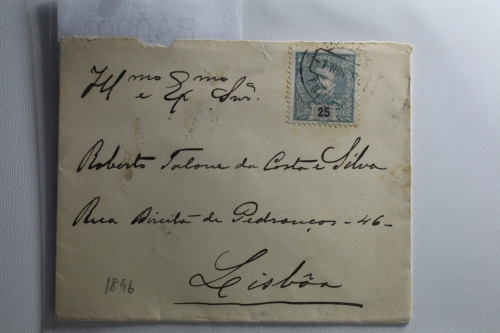 Illmo e Exmo Snr.
25
Roberto Talone da Costa e Silva
Rua Direita de Pedrouços - 46 -
Lisbôa
1896